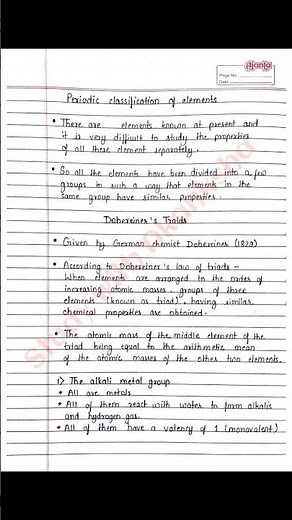 Ajanta
Page No.
Date
Periodic classification of elements
• There are elements known at present and
it is very difficult to study the properties
of all these element separately.
• So all the elements have been divided into a few
groups in such a way that elements in the
same group have similar properties.
Dobereiner's Traids
• Given by German chemist Dobereiner (1829)
• According to Dobereiner's law of triads -
When element are arranged in the order of
increasing atomic masses. groups of three
elements (known as triad), having similar
chemical properties are obtained.
• The atomic mass of the middle element of the
triad being equal to the arithmetic mean
of the atomic masses of the other two elements.
1) The alkali metal group
• All are metals
• All of them react with water to form alkalis
and hydrogen gas.
• All of them have a valency of 1 (monovalent)